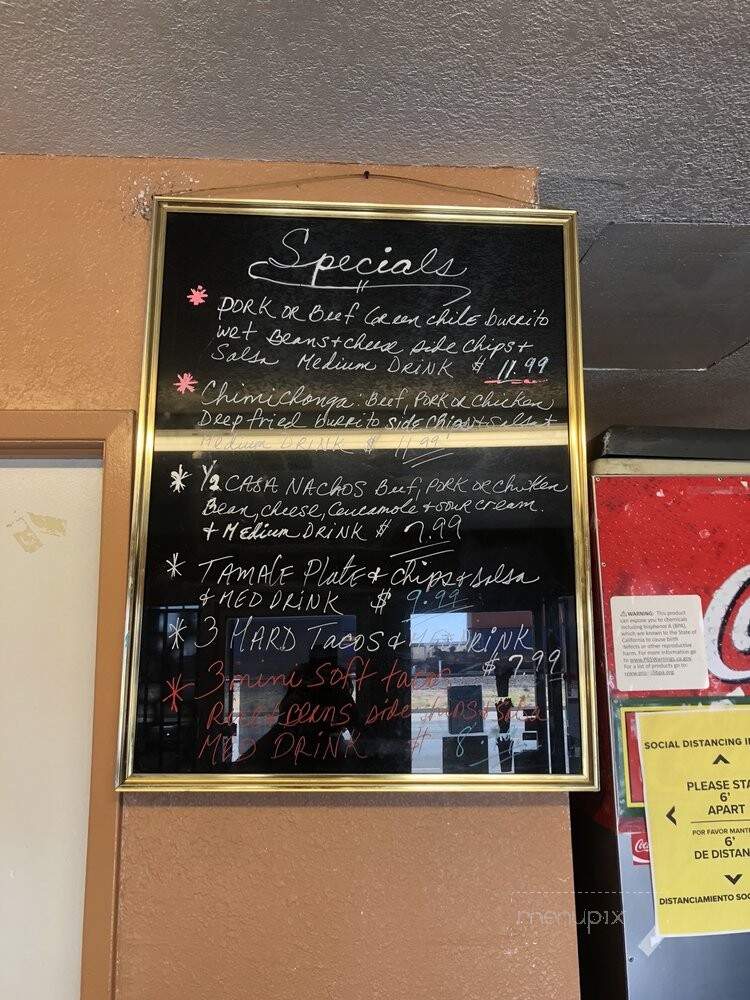 Specials
* PORK OR Beef Green chile burrito
wet Beans + cheese side chips +
Salsa Medium DRINK $ 11.99
* Chimichanga: Beef, PORK or Chicken
Deep fried burrito side Chips + Salsa +
Medium DRINK $ 11.99
* 1/2 CASA NACHOS Beef, PORK OR Chicken
Bean, cheese, Guacamole + sour cream.
+ Medium DRINK $ 7.99
* TAMALE Plate + chips + salsa
& MED DRINK $ 9.99
* 3 HARD Tacos & MED DRINK
$ 7.99
* 3 mini Soft Tacos
Rice + Beans side chips + salsa
MED DRINK $ 8.
WARNING: This product
can expose you to chemicals
including bisphenol A (BPA),
which are known to the State of
California to cause birth
defects or other reproductive
harm. For more information go
to www.P65Warnings.ca.gov.
For a list of products go to:
SOCIAL DISTANCING
PLEASE
6'
APART
POR FAVOR
6'
DE
DISTANCIAMIENTO
menupix